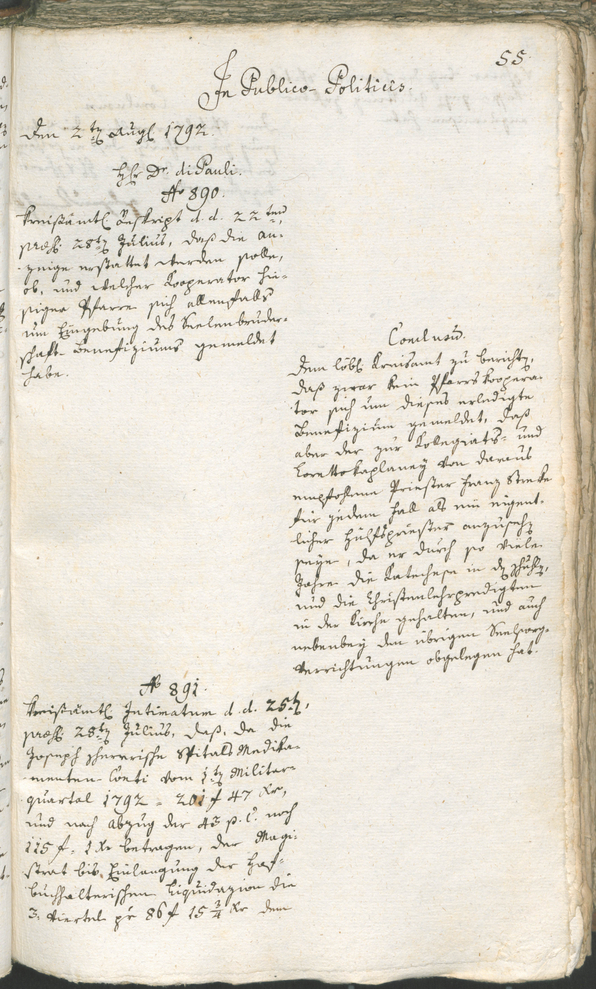 55
In Publico-Politicis.
Den 2ten Augl 1792.
Hhr Dr. di Pauli.
No 890.
Kreisämtl Reskript d. d. 22ten
præs. 28ten Julius, daß die An-
zeige erstattet werden solle,
ob, und welcher Kooperator hie-
siger Pfarre sich allenfalls
um Eingebung des Seelenbruder-
schaft-Benefiziums gemeldet
habe.
Conclusum.
Dem löbl Kreisamt zu berichten,
daß zwar kein Pfarrskoopera-
tor sich um dieses erledigte
Benefizium gemeldet, daß
aber der zur Kollegiats- und
Lorettokaplaney von daraus
empfohlene Priester Franz
für jeden Fall als ein eigent-
licher Hülfspriester anzusehen
seye, da er durch so viele
Jahre die Katechesen in den Schulen,
und die Christenlehrpredigten
in der Kirche gehalten, und auch
nebenbey den übrigen Seelsorgs-
verrichtungen obgelegen hat.
No 891.
Kreisämtl Intimatum d. d. 25ten,
præs. 28ten Julius, daß, da die
Joseph Scherersche Spitals Medika-
menten-Conti vom 1ten Militar-
quartal 1792 = 201 f 47 Xr,
und nach Abzug der 43 p. C. noch
115 f. 1 Xr betragen, der Magi-
strat bis Einlangung der Hof-
buchhalterischen Liquidazion die
3. Viertel pr 86 f 15 3/4 Xr dem